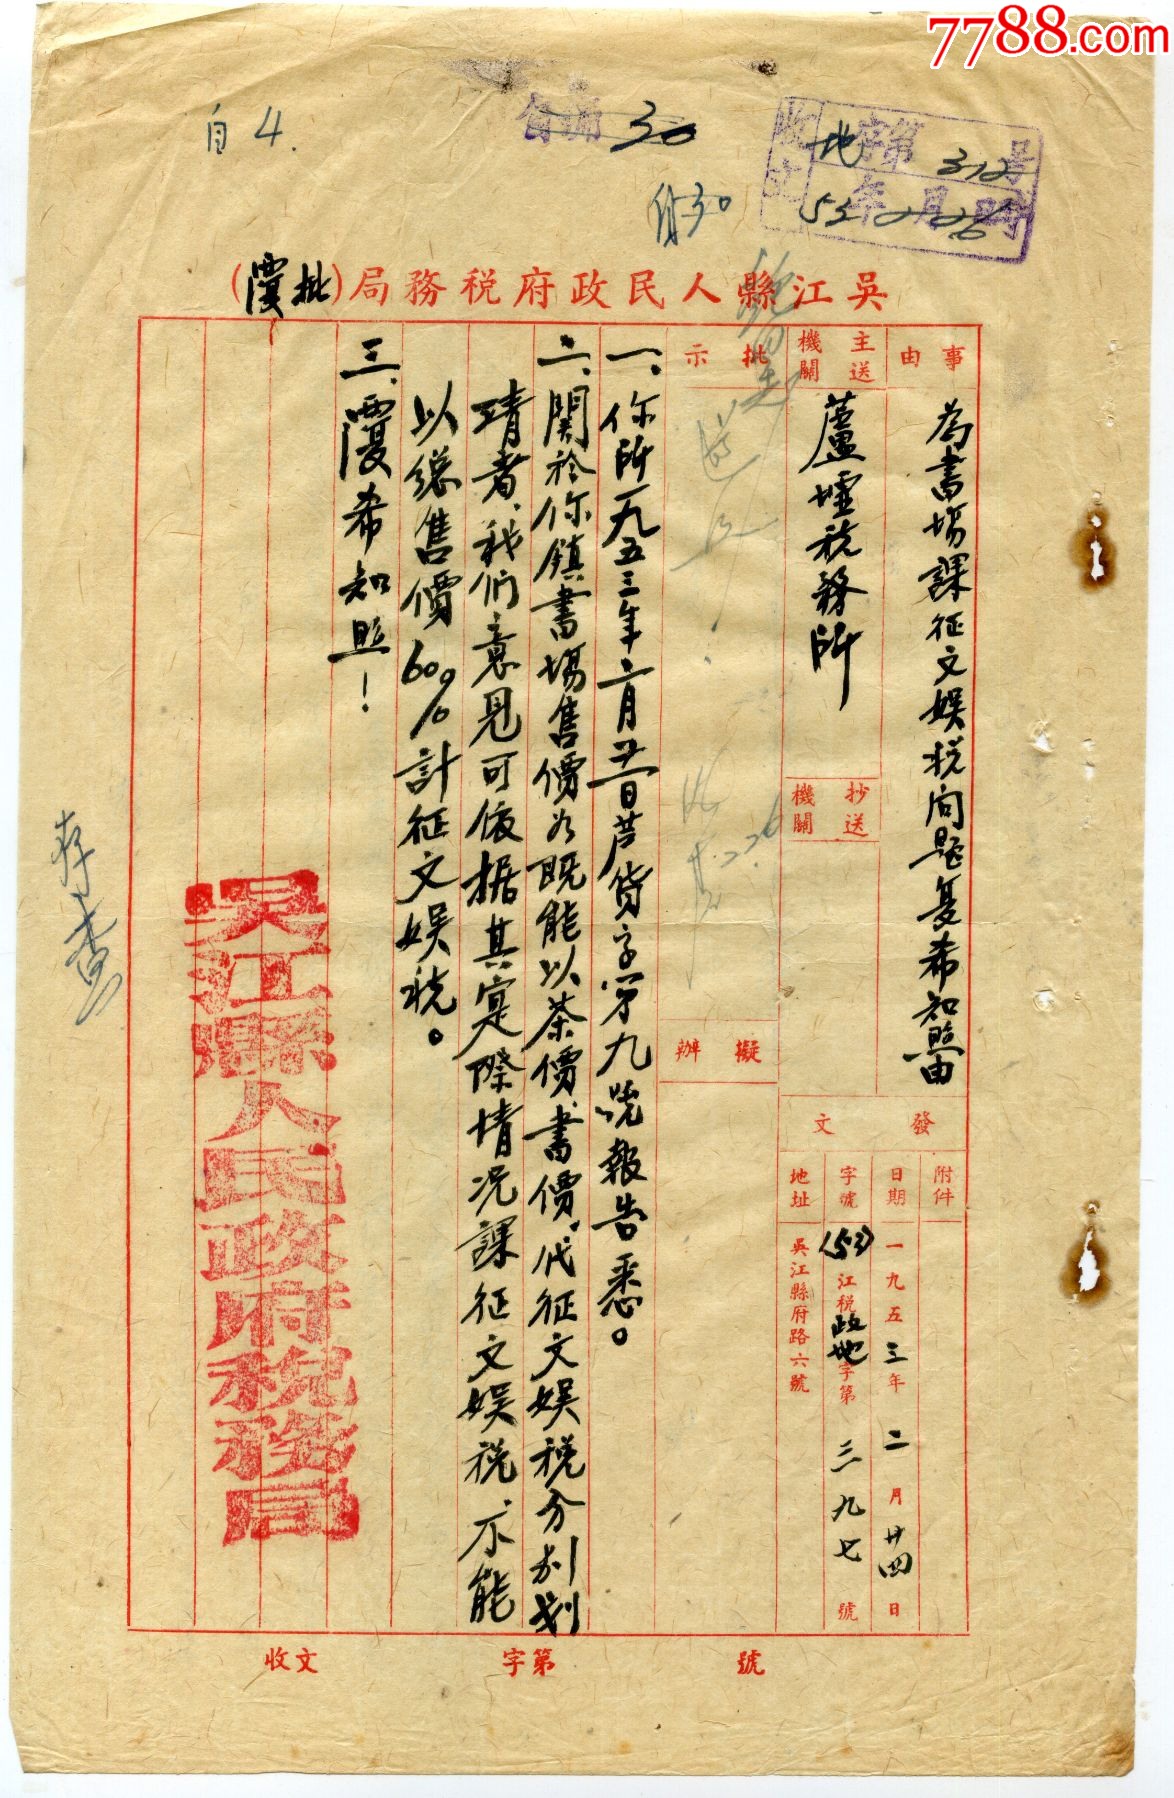 7788.com
自4.
30
收文 地字第312号
53年2月26
吳江縣人民政府稅務局(批覆)
事由
為書場課征文娱税问题复希知照由
主送機關
蘆墟税務所
抄送機關
發文
附件
日期 一九五三年二月廿四日
字號 (53)江税政地字第三九七號
地址 吳江縣府路六號
批示
擬辦
一、你所一九五三年二月廿一日芦货字第九號報告悉。
二、関於你鎮書場售價为既能以茶價、書價、代征文娱税分别划
清者、我們意見可依据其实際情况課征文娱税、不能
以總售價60%計征文娱税。
三、覆希知照！
吴江縣人民政府税務局
存查
收文 字第 號